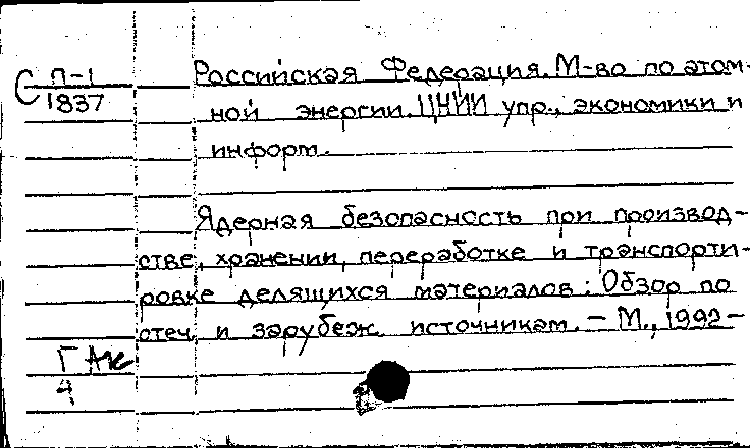 С П-1
1837
Российская Федерация. М-во по атом-
ной энергии. ЦНИИ упр., экономики и
информ.
Ядерная безопасность при производ-
стве, хранении, переработке и транспорти-
ровке делящихся материалов: Обзор по
отеч. и зарубеж. источникам. – М., 1992 –
Г
4